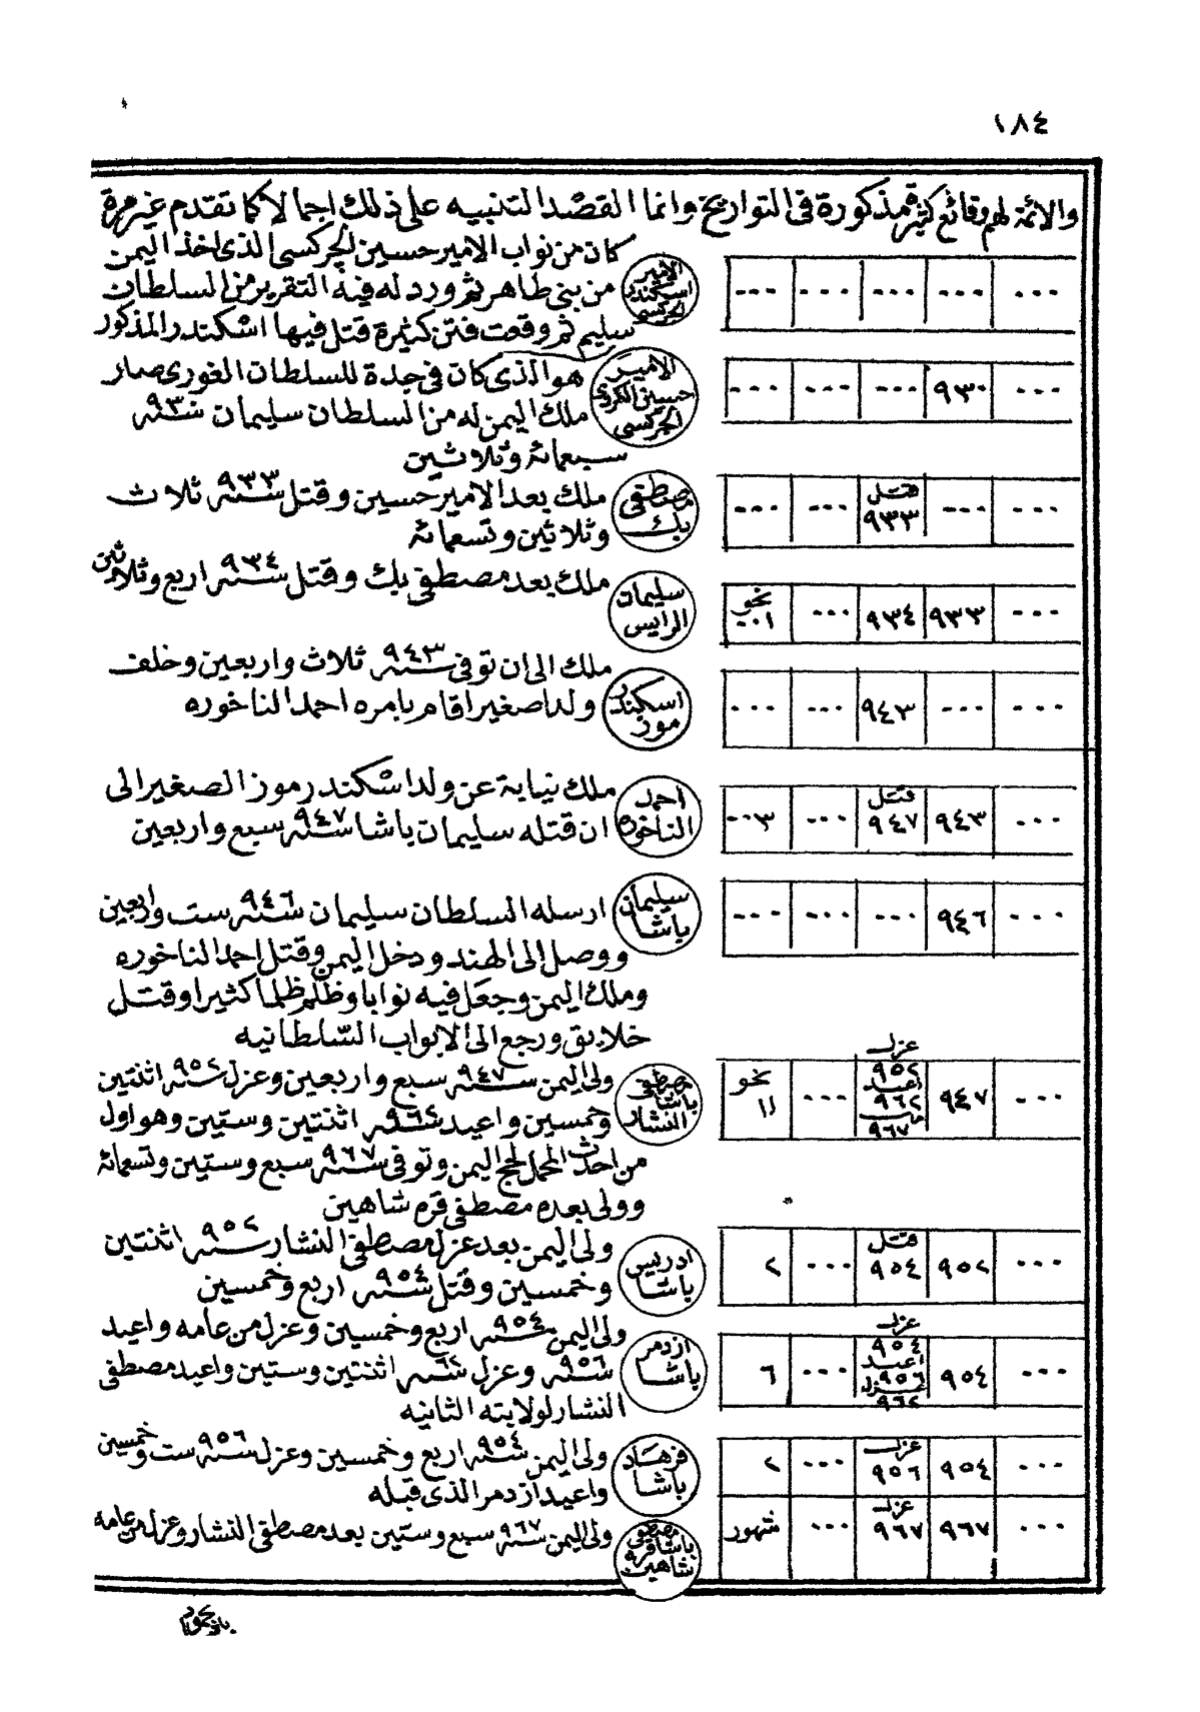 ١٨٤
والائمة لهم وقائع كثيرة مذكورة فى التواريخ وانما القصد التنبيه على ذلك اجمالا كما تقدم غير مرة
... ... ... ... ...
الامير اسكندر الجركسى
كان من نواب الامير حسين الجركسى الذى اخذ اليمن
من بنى طاهر ثم ورد له فيه التقرير من السلطان
سليم ثم وقعت فتن كثيرة قتل فيها اسكندر المذكور
... ٩٣٠ ... ... ...
الامير حسين الكردى الجركسى
هو الذى كان فى جدة للسلطان الغورى صار
ملك اليمن له من السلطان سليمان سنه ٩٣٠
سبعمائة وثلاثين
... ... قتل ٩٣٣ ... ...
مصطفى بك
ملك بعد الامير حسين وقتل سنه ٩٣٣ ثلاث
وثلاثين وتسعمائة
... ٩٣٣ ٩٣٤ ... نحو ٠٠١
سليمان الرايس
ملك بعد مصطفى بك وقتل سنه ٩٣٤ اربع وثلاثين
... ... ٩٤٣ ... ...
اسكندر موز
ملك الى ان توفى سنه ٩٤٣ ثلاث واربعين وخلف
ولدا صغيرا قام بامره احمد الناخوره
... ٩٤٣ قتل ٩٤٧ ... ٠٠٣
احمد الناخوره
ملك نيابة عن ولد اسكندر موز الصغير الى
ان قتله سليمان باشا سنه ٩٤٧ سبع واربعين
... ٩٤٦ ... ... ...
سليمان باشا
ارسله السلطان سليمان سنه ٩٤٦ ست واربعين
ووصل الى الهند ودخل اليمن وقتل احمد الناخوره
وملك اليمن وجعل فيه نوابا وظلم ظلما كثيرا وقتل
خلايق ورجع الى الابواب السلطانيه
... ٩٤٧ عزل ٩٥٢ اعيد ٩٦٢ مات ٩٦٧ ... نحو ١١
مصطفى باشا النشار
ولى اليمن سنه ٩٤٧ سبع واربعين وعزل سنه ٩٥٢ اثنتين
وخمسين واعيد سنه ٩٦٢ اثنتين وستين وهو اول
من احدث المحمل لحج اليمن وتوفى سنه ٩٦٧ سبع وستين وتسعمائة
وولى بعده مصطفى قره شاهين
... ٩٥٢ قتل ٩٥٤ ... ٢
ادريس باشا
ولى اليمن بعد عزل مصطفى النشار سنه ٩٥٢ اثنتين
وخمسين وقتل سنه ٩٥٤ اربع وخمسين
... ٩٥٤ عزل ٩٥٤ اعيد ٩٥٦ عزل ٩٦٢ ... ٦
ازدمر باشا
ولى اليمن سنه ٩٥٤ اربع وخمسين وعزل من عامه واعيد
سنه ٩٥٦ وعزل سنه ٦٢ اثنتين وستين واعيد مصطفى
النشار لولايته الثانيه
... ٩٥٤ عزل ٩٥٦ ... ٢
فرهاد باشا
ولى اليمن سنه ٩٥٤ اربع وخمسين وعزل سنه ٩٥٦ ست وخمسين
واعيد ازدمر الذى قبله
... ٩٦٧ عزل ٩٦٧ ... شهور
مصطفى باشا قره شاهين
ولى اليمن سنه ٩٦٧ سبع وستين بعد مصطفى النشار وعزل من عامه